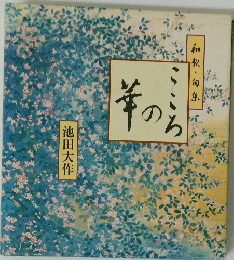 和歌・句集
こころ
の華
池田大作